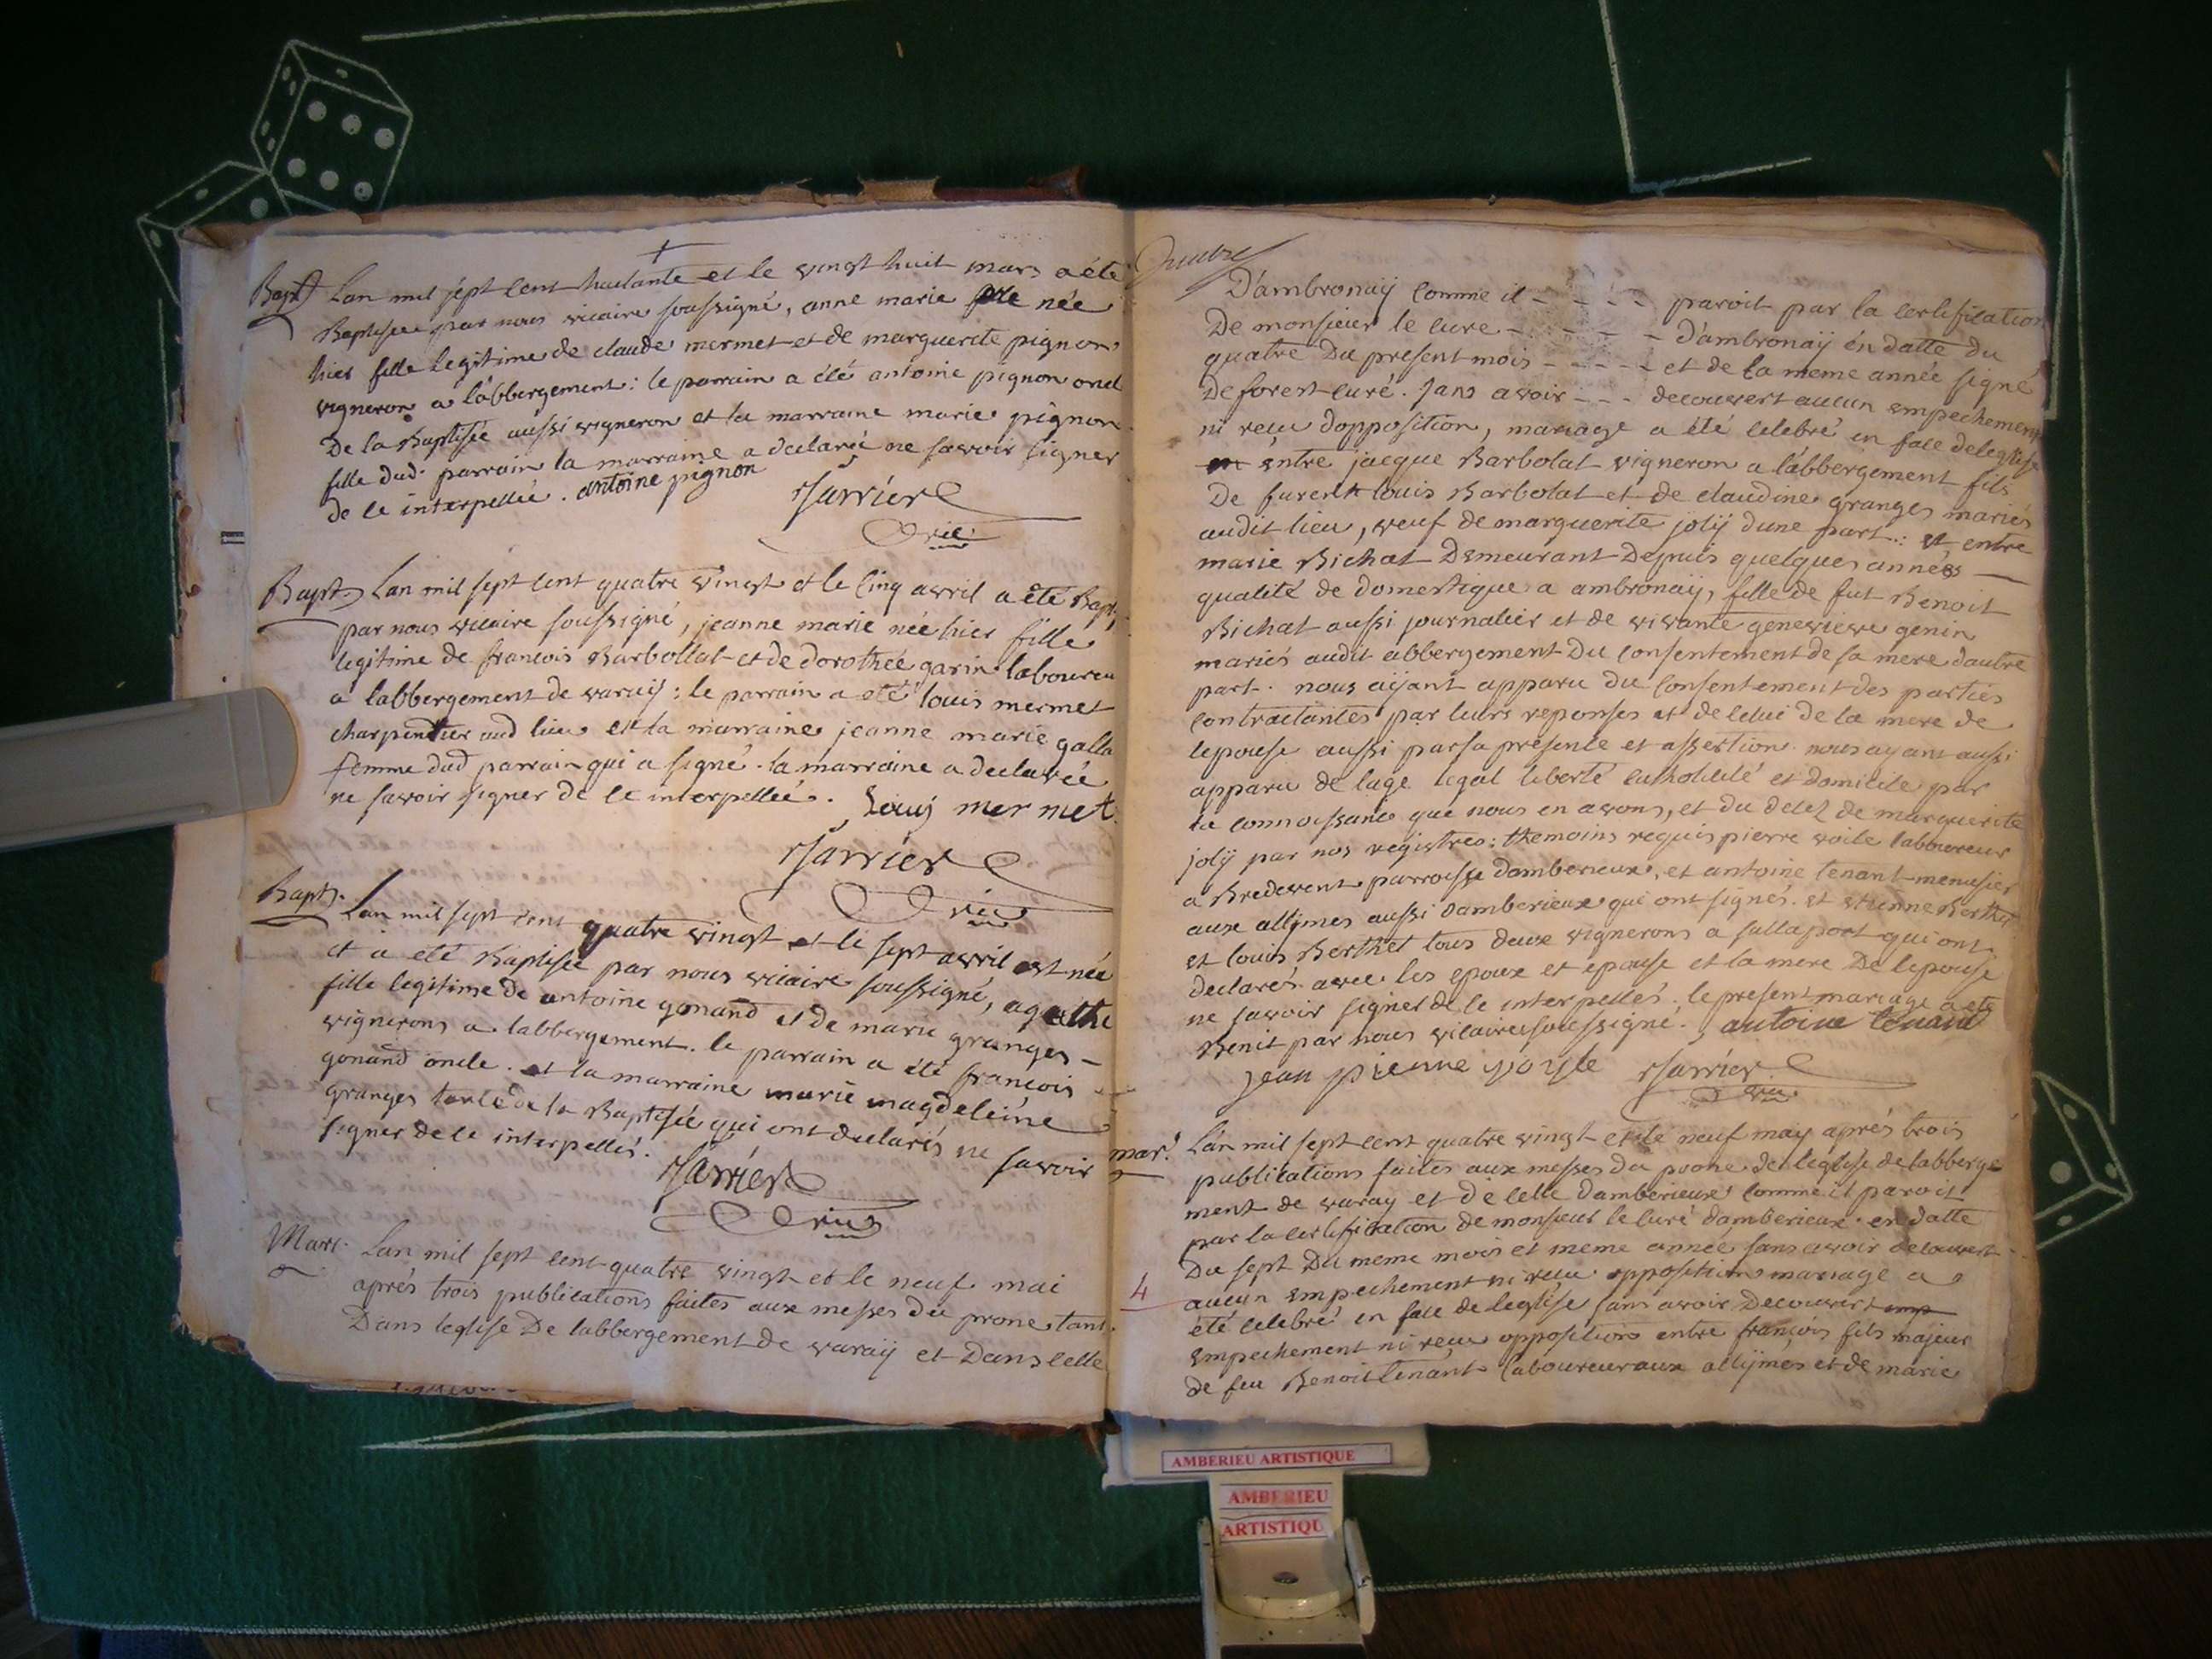 Bapt. Lan mil sept cent huitante et le vingt huit mars a été
Baptisée par nous vicaire soussigné, anne marie née
hier fille legitime de claude mermet et de marguerite pignon
vigneron a l'abbergement: le parrain a été antoine pignon oncl
De la Baptisée aussi vigneron et la marraine marie pignon
fille dud. parrain la marraine a declarée ne savoir signer
de ce interpellée. antoine pignon
vic
Bapt. Lan mil sept cent quatre vingt et le cinq avril a été Bapt.
par nous vicaire soussigné, jeanne marie née hier fille
legitime de francois Barbollat et de dorothée garin laboureu
a labbergement de varaÿ: le parrain a eté louis mermet
charpentier aud lieu et la marraine jeanne marie galla
femme dud parrain qui a signé. la marraine a declarée
ne savoir signer de ce interpellée. Louis mermet
vic
Bapt. Lan mil sept cent quatre vingt et le sept avril est née
et a eté Baptisée par nous vicaire soussigné, agathe
fille legitime de antoine gonand et de marie granges –
vignerons a labbergement. le parrain a été francois
gonand oncle. et la marraine marie magdeleine
granges tante de la Baptisée qui ont declarés ne savoir
signer de ce interpellés.
vic
Mari. Lan mil sept cent quatre vingt et le neuf mai
aprés trois publications faites aux messes du prone tant
Dans leglise De labbergement de varaÿ et Dans celle
quatre
D'ambronaÿ comme il - - - - paroit par la certification
De monsieur le cure - - - - - D'ambronaÿ én datte du
quatre Du present mois - - - - - et de la meme année signé
De forest curé. sans avoir - - - decouvert aucun empechement
ni recu dopposition, mariage a été celebré en face deleglise
entre jacque Barbolat vigneron a l'abbergement fils
De furent louis Barbolat et de claudine granges mariés
audit lieu, veuf de marguerite jolÿ dune part: et entre
marie Bichat Demeurant Depuis quelques années —
qualité de domestique a ambronaÿ, fille de fut Benoit
Bichat aussi journalier et de vivante genevieve genin
mariés audit abbergement Du consentement de sa mere dautre
part. nous aÿant apparu du consentement des parties
contractantes par leurs reponses et de celui de la mere de
lepouse aussi par sa présence et assertion. nous ayant aussi
apparu de lage legal liberté catholicité et domicile par
la connoissance que nous en avons, et du decez de marguerite
jolÿ par nos registres: themoins requis pierre voile laboureur
a Bredevent parroisse damberieux, et antoine tenant menusier
aux allÿmes aussi damberieux qui ont signés. et etienne Berthet
et louis Berthet tous deux vignerons a sallaport qui ont
declarés avec les epoux et epouse et la mere De lepouse
ne savoir signer de ce interpellés. le present mariage a ete
Benit par nous vicaire soussigné. antoine tenant
jean pierre
vic
mar. Lan mil sept cent quatre vingt et le neuf may aprés trois
publications faites aux messes du prone de leglise de labberge
ment de varay et de celle damberieux comme il paroit
par la certification de monsieur le curé damberieux en datte
Du sept Du meme mois et meme année sans avoir decouvert
4
aucun empechement ni reçu opposition mariage a
été celebré en face de leglise sans avoir Decouvert emp
empechement ni reçu opposition entre françois fils majeur
de feu Benoit tenant laboureur aux allÿmes et de marie
AMBERIEU ARTISTIQUE
AMBERIEU
ARTISTIQU